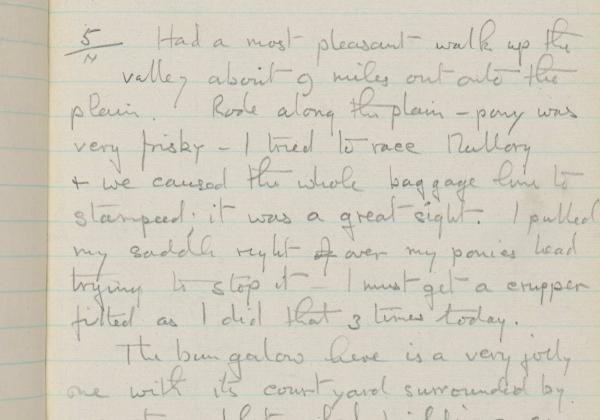 5/IV Had a most pleasant walk up the
valley about 9 miles out onto the
plain. Rode along the plain - pony was
very frisky - I tried to race Mallory
+ we caused the whole baggage line to
stampeed; it was a great sight. I pulled
my saddle right over my ponies head
trying to stop it - I must get a crupper
fitted as I did that 3 times today.
The bungalow here is a very jolly
one with its courtyard surrounded by